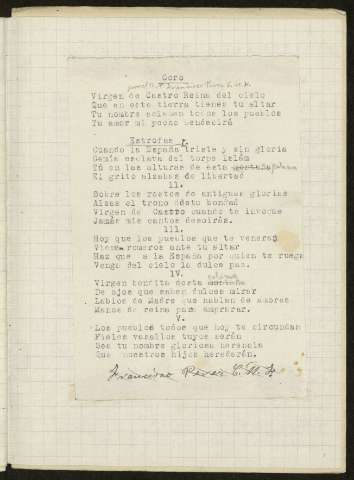 Coro
por el P. Francisco Pérez C. M. F.
Virgen de Castro Reina del cielo
Que en esta tierra tienes tu altar
Tu nombre aclaman todos los pueblos
Tu amor mi pecho bendecirá
Estrofas I.
Cuando la España triste y sin gloria
Gemía esclava del torpe Islám
Tú en las alturas de esta
El grito alzabas de libertad
11.
Sobre los restos de antiguas glorias
Alzas el trono desta bondad
Virgen de Castro cuando te invoque
Jamás mis cantos desoirás.
111.
Hoy que los pueblos que te veneran
Vienen romeros ante tu altar
Haz que a la España por quien te ruega
Venga del cielo la dulce paz.
1V.
Virgen bendita desta
De ojos que saben dulces mirar
Labios de Madre que hablan de amores
Manos de reina para amparar.
V.
Los pueblos todos que hoy te circundan
Fieles vasallos tuyos serán
Sea tu nombre gloriosa herencia
Que nuestros hijos heredarán.
Francisco Pérez C. M. F.